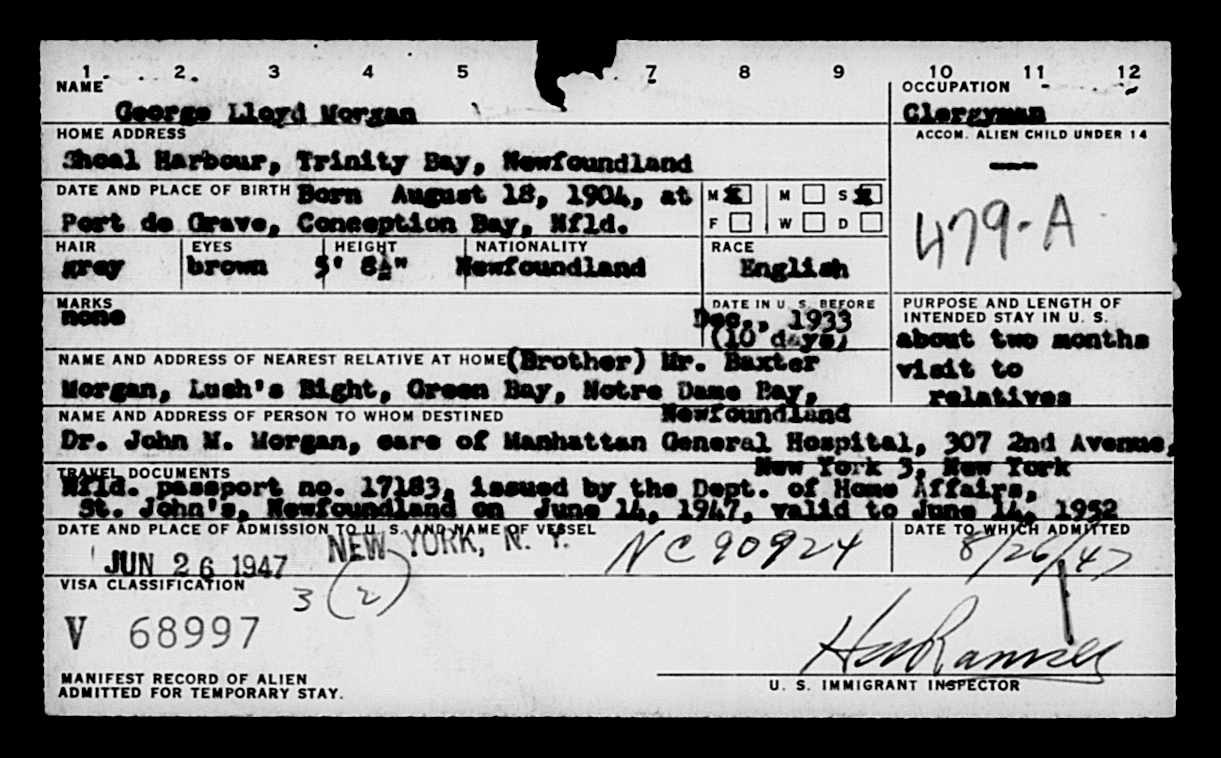 1 2 3 4 5 7 8 9 10 11 12
NAME
George Lloyd Morgan
OCCUPATION
Clergyman
HOME ADDRESS
Shoal Harbour, Trinity Bay, Newfoundland
ACCOM. ALIEN CHILD UNDER 14
—
DATE AND PLACE OF BIRTH Born August 18, 1904, at
Port de Grave, Conception Bay, Nfld.
M X M S X
F W D
479-A
HAIR EYES HEIGHT NATIONALITY RACE
grey brown 5' 8½" Newfoundland English
MARKS
none
DATE IN U. S. BEFORE
Dec., 1933
(10 days)
PURPOSE AND LENGTH OF
INTENDED STAY IN U. S.
about two months
visit to
relatives
NAME AND ADDRESS OF NEAREST RELATIVE AT HOME (Brother) Mr. Baxter
Morgan, Lush's Bight, Green Bay, Notre Dame Bay,
Newfoundland
NAME AND ADDRESS OF PERSON TO WHOM DESTINED
Dr. John M. Morgan, care of Manhattan General Hospital, 307 2nd Avenue,
New York 3, New York
TRAVEL DOCUMENTS
Nfld. passport no. 17183, issued by the Dept. of Home Affairs,
St. John's, Newfoundland on June 14, 1947, valid to June 14, 1952
DATE AND PLACE OF ADMISSION TO U. S. AND NAME OF VESSEL
JUN 26 1947 NEW YORK, N. Y. NC90924
DATE TO WHICH ADMITTED
8/26/47
VISA CLASSIFICATION
3 (2)
V 68997
MANIFEST RECORD OF ALIEN
ADMITTED FOR TEMPORARY STAY.
U. S. IMMIGRANT INSPECTOR